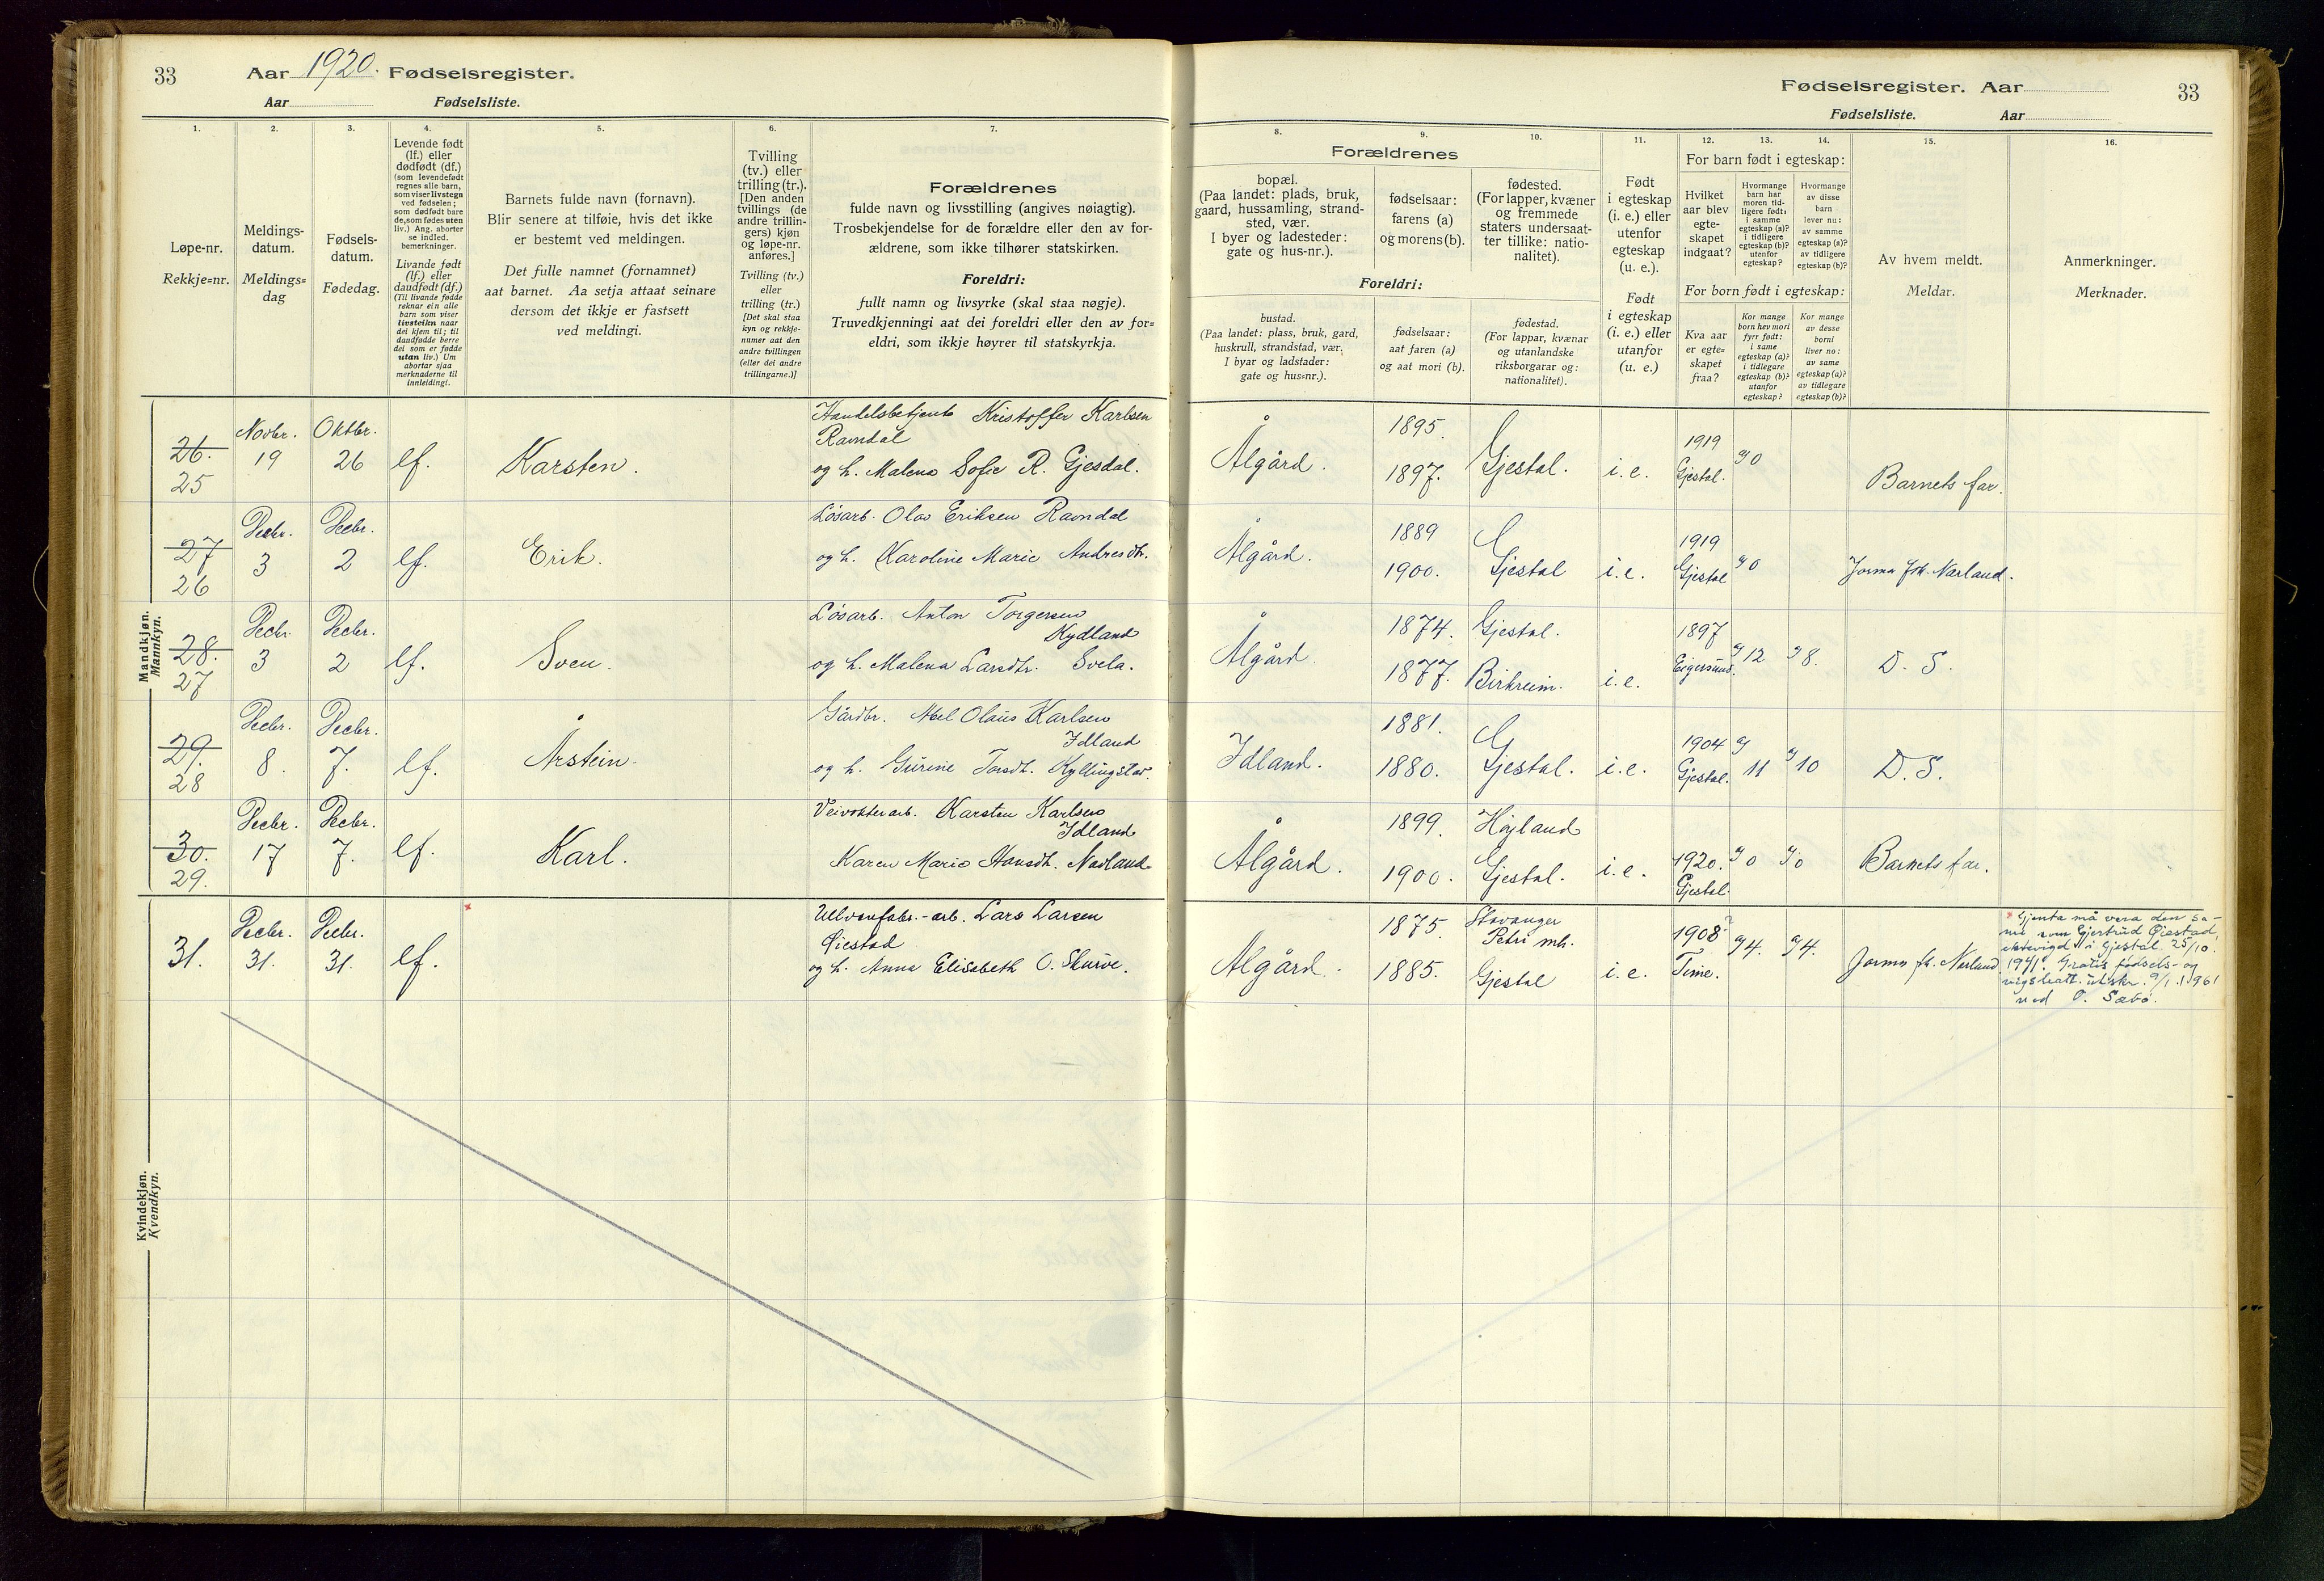 33 Aar 1920. Fødselsregister.
Aar Fødselsliste.
1. 2. 3. 4. 5. 6. 7.
Løpe-nr.
Rekkje=nr.
Meldings-
datum.
Meldings=
dag
Fødsels-
datum.
Fødedag.
Levende født
(lf.) eller
dødfødt (df.)
(som levendefødt
regnes alle barn,
som viser livstegn
ved fødselen;
som dødfødt bare
de, som fødes uten
liv.) Ang. aborter
se indled.
bemerkninger.
Livande født
(lf.) eller
daudfødt (df.)
(Til livande fødde
reknar ein alle
barn som viser
livsteikn naar
dei kjem til; til
daudfødde berre
dei som er fødde
utan liv.) Um
abortar sjaa
merknaderne til
innleidingi.
Barnets fulde navn (fornavn).
Blir senere at tilføie, hvis det ikke
er bestemt ved meldingen.
Det fulle namnet (fornamnet)
aat barnet. Aa setja attaat seinare
dersom det ikkje er fastsett
ved meldingi.
Tvilling
(tv.) eller
trilling (tr.).
[Den anden
tvillings (de
andre trillin-
gers) kjøn
og løpe-nr.
anføres.]
Tvilling (tv.)
eller
trilling (tr.)
[Det skal staa
kyn og rekkje-
numer aat den
andre tvillingen
(eller dei andre
trillingarne.)]
Forældrenes
fulde navn og livsstilling (angives nøiagtig).
Trosbekjendelse for de forældre eller den av for-
ældrene, som ikke tilhører statskirken.
Foreldri:
fullt namn og livsyrke (skal staa nøgje).
Truvedkjenningi aat dei foreldri eller den av for=
eldri, som ikkje høyrer til statskyrkja.
Mandkjøn.
Mannkyn.
26. Novbr. Oktbr. Handelsbetjent Kristoffer Karlsen
Ravndal
25 19 26 lf. Karsten. og h. Malena Sofie R. Gjesdal.
27 Decbr. Decbr. Løsarb. Olav Eriksen Ravndal
26 3 2 lf. Erik. og h. Karoline Marie Andresdtr.
28. Decbr. Decbr. Løsarb. Anton Torgersen
Kydland
27 3 2 lf. Sven. og h. Malena Larsdtr. Svela.
29. Decbr. Decbr. Gårdbr. Abel Olaus Karlsen
Idland
28 8. 7. lf. Årstein. og h. Gurine Torsdt. Kyllingstad.
30. Decbr. Decbr. Veivokterarb. Karsten Karlsen
Idland
29. 17 7. lf. Karl. Karen Marie Hansdt. Nadland
Kvindekjøn.
Kvendkyn.
31. Decbr. Decbr. lf. Uldvarefabr.-arb. Lars Larsen
Øiestad
31. 31. og h. Anna Elisabeth O. Skurve.
Fødselsregister. Aar 33
Fødselsliste. Aar
8. 9. 10. 11. 12. 13. 14. 15. 16.
Forældrenes
bopæl.
(Paa landet: plads, bruk,
gaard, hussamling, strand-
sted, vær.
I byer og ladesteder:
gate og hus-nr.).
fødselsaar:
farens (a)
og morens (b).
fødested.
(For lapper, kvæner
og fremmede
staters undersaat-
ter tillike: natio-
nalitet).
Foreldri:
bustad.
(Paa landet: plass, bruk, gard,
huskrull, strandstad, vær.
I byar og ladstader:
gate og hus=nr.).
fødselsaar:
aat faren (a)
og aat mori (b).
fødestad.
(For lappar, kvænar
og utanlandske
riksborgarar og:
nationalitet).
Født
i egteskap
(i. e.) eller
utenfor
egteskap
(u. e.).
Født
i egteskap
(i. e.) eller
utanfor
(u. e.)
For barn født i egteskap:
Hvilket
aar blev
egte-
skapet
indgaat?
Hvormange
barn har
moren tid-
ligere født:
i samme
egteskap (a)?
i tidligere
egteskap (b)?
utenfor
egteskap?
Hvormange
av disse
barn
lever nu:
av samme
egteskap (a)?
av tidligere
egteskap (b)?
For born født i egteskap:
Kva aar
er egte=
skapet
fraa?
Kor mange
born hev mori
fyrr født:
i same
egteskap (a)?
i tidlegare
egteskap (b)?
utanfor
egteskap?
Kor mange
av desse
borni
liver no:
av same
egteskap (a)?
av tidlegare
egteskap (b)?
Av hvem meldt.
Meldar.
Anmerkninger.
Merknader.
Ålgård. 1895. 1897. Gjestal. i.e. 1919 Gjestal. a) 0 Barnets far.
Ålgård. 1889 1900. Gjestal i.e. 1919 Gjestal a) 0 Jormor frk. Nærland.
Ålgård. 1874. Gjestal. 1877. Birkreim. i.e. 1897 Eigersund. a) 12 a) 8. D. S.
Idland. 1881. 1880. Gjestal. i.e. 1904 Gjestal. a) 11 a) 10 D. S.
Ålgård. 1899. Højland 1900. Gjestal. i.e. 1920. Gjestal. a) 0 a) 0 Barnets far.
Ålgård. 1875. Stavanger Petri mh. 1885. Gjestal i.e. 1908? Time. a) 4. a) 4. Jormor fr. Nærland
× Gjenta må vera den sa-
me som Gjertrud Øiestad,
ektevigd i Gjestal 25/10.
1941. Gratis fødsels- og
vigslsatt. utskr. 9/1.1961
ved O. Sæbø.